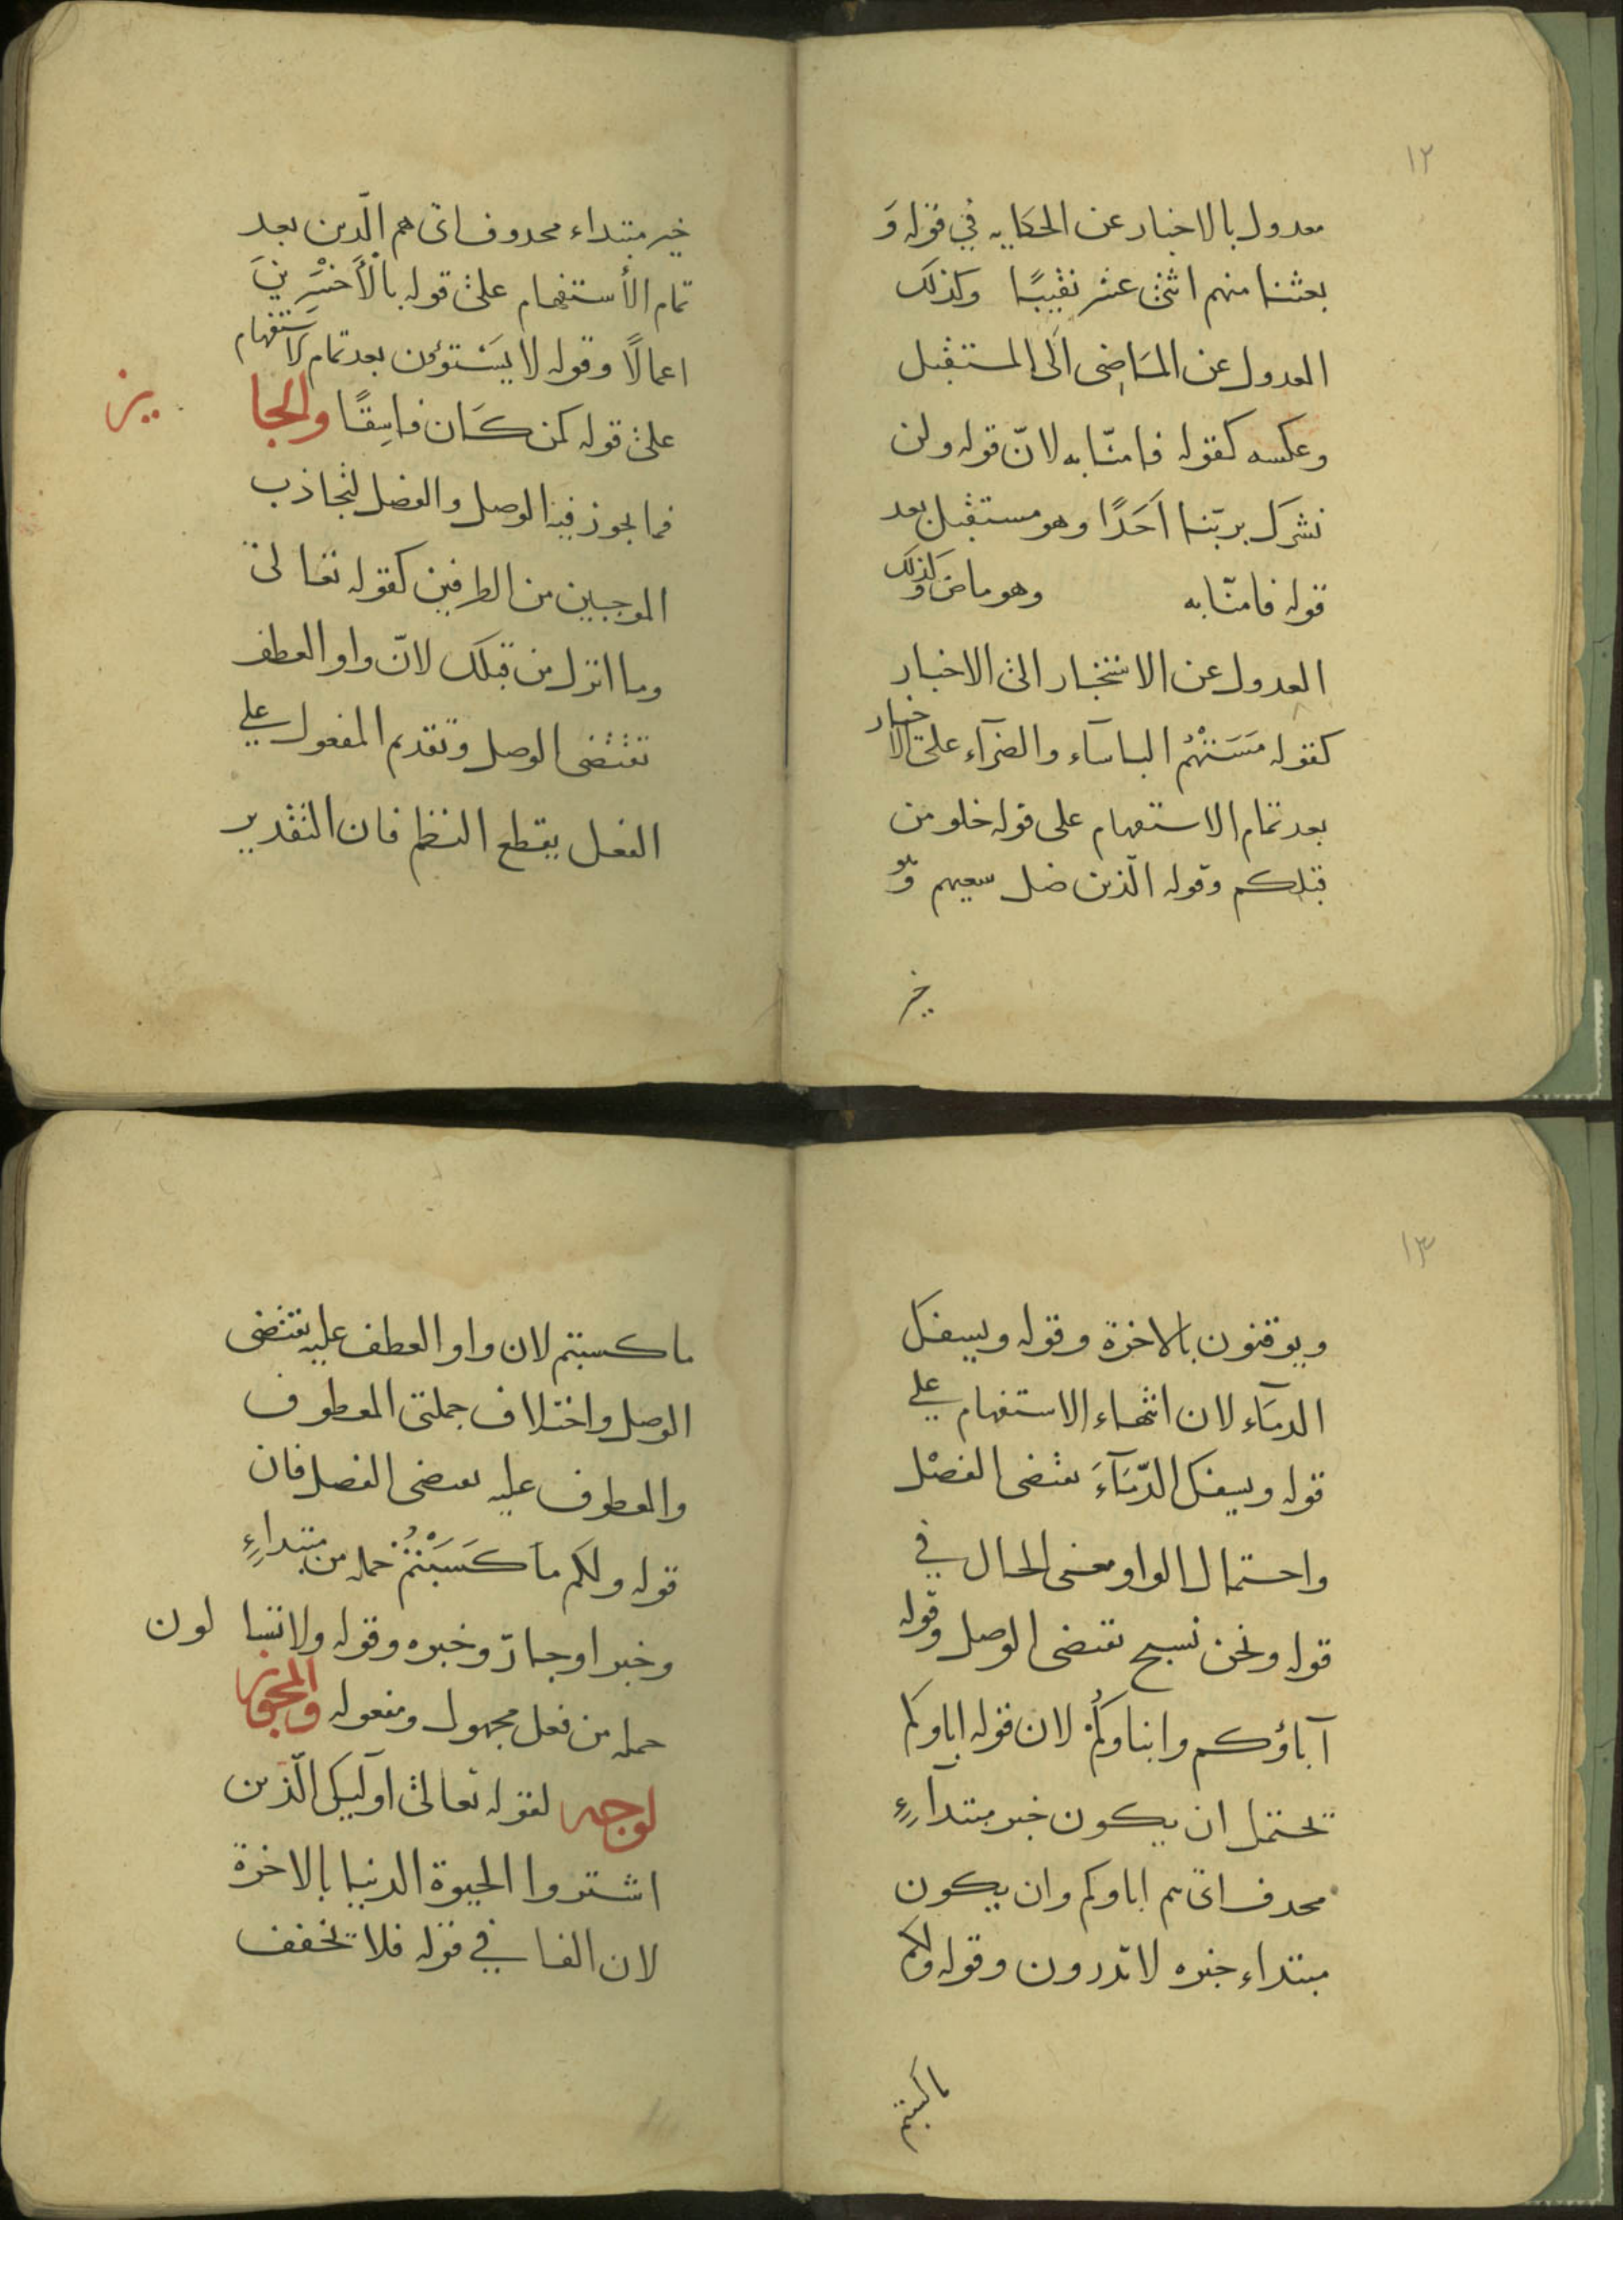 ١٢
معدول بالاخبار عن الحكايه في قوله وَ
بعثنا منهم اثنى عشر نقيبًا وكذلك
العدول عن المَاضِى الَى المستقبل
وعكسه كقوله فامنّا به لانّ قوله ولن
نشرك بربّنا اَحَدًا وهو مستقبل بعد
قوله فامنّا به وهو ماض وكذلك
العدول عن الاستخبار الى الاخبار
كقوله مَسَتْهُمُ الباسآء والضرآء على الاخبار
بعد تمام الاستفهام على قوله خلو من
قبلكم وقوله الّذين ضل سعيهم وهو
خبر
خبر مبتداء محدوف اى هم الّدين بعد
تمام الأستفهام على قوله بالْأَخْسَرِينَ
اعمالًا وقوله لا يسَتوؤن بعد تمام الاستفهام
على قوله كمن كَان فاسِقًا والجا
يز
فما يجوز فيه الوصل والفصل لتجاذب
الموجبين من الطرفين كقوله تعالى
وما انزل من قبلك لانّ واو العطف
تقتضى الوصل وتقديم المفعول علي
الفعل يقطع النظم فان التقدير
١٣
ويوقنون بالاخرة وقوله ويسفك
الدمَآء لان انتهاء الاستفهام علي
قوله ويسفك الدّمَآءَ يقتضى الفصْل
واحتمال الواو معنى الحال في
قوله ونحن نسبح تقتضى الوصل وقوله
آباؤكم وابناوكُمْ لان قوله اباوكم
تحتمل ان يكون خبر مبتدآءٍ
محدف اى هم اباوكم وان يكون
مبتداء خبره لا تدرون وقوله ولكم
ما كسبتم
ما كسبتم لان واو العطف عليه تقتضى
الوصل واختلاف جملتى المعطوف
والمعطوف عليه يقتضى الفصل فان
قوله ولكم ما كَسَبْتُمْ جمله من مبتداءٍ
وخبر او جارّ وخبره وقوله ولا تسا لون
جمله من فعل مجهول ومفعوله والمجوز
لوجه لقوله تعالى اوليك الّذين
اشتروا الحيوة الدنيا بالاخرة
لان الفا في قوله فلا يخفف